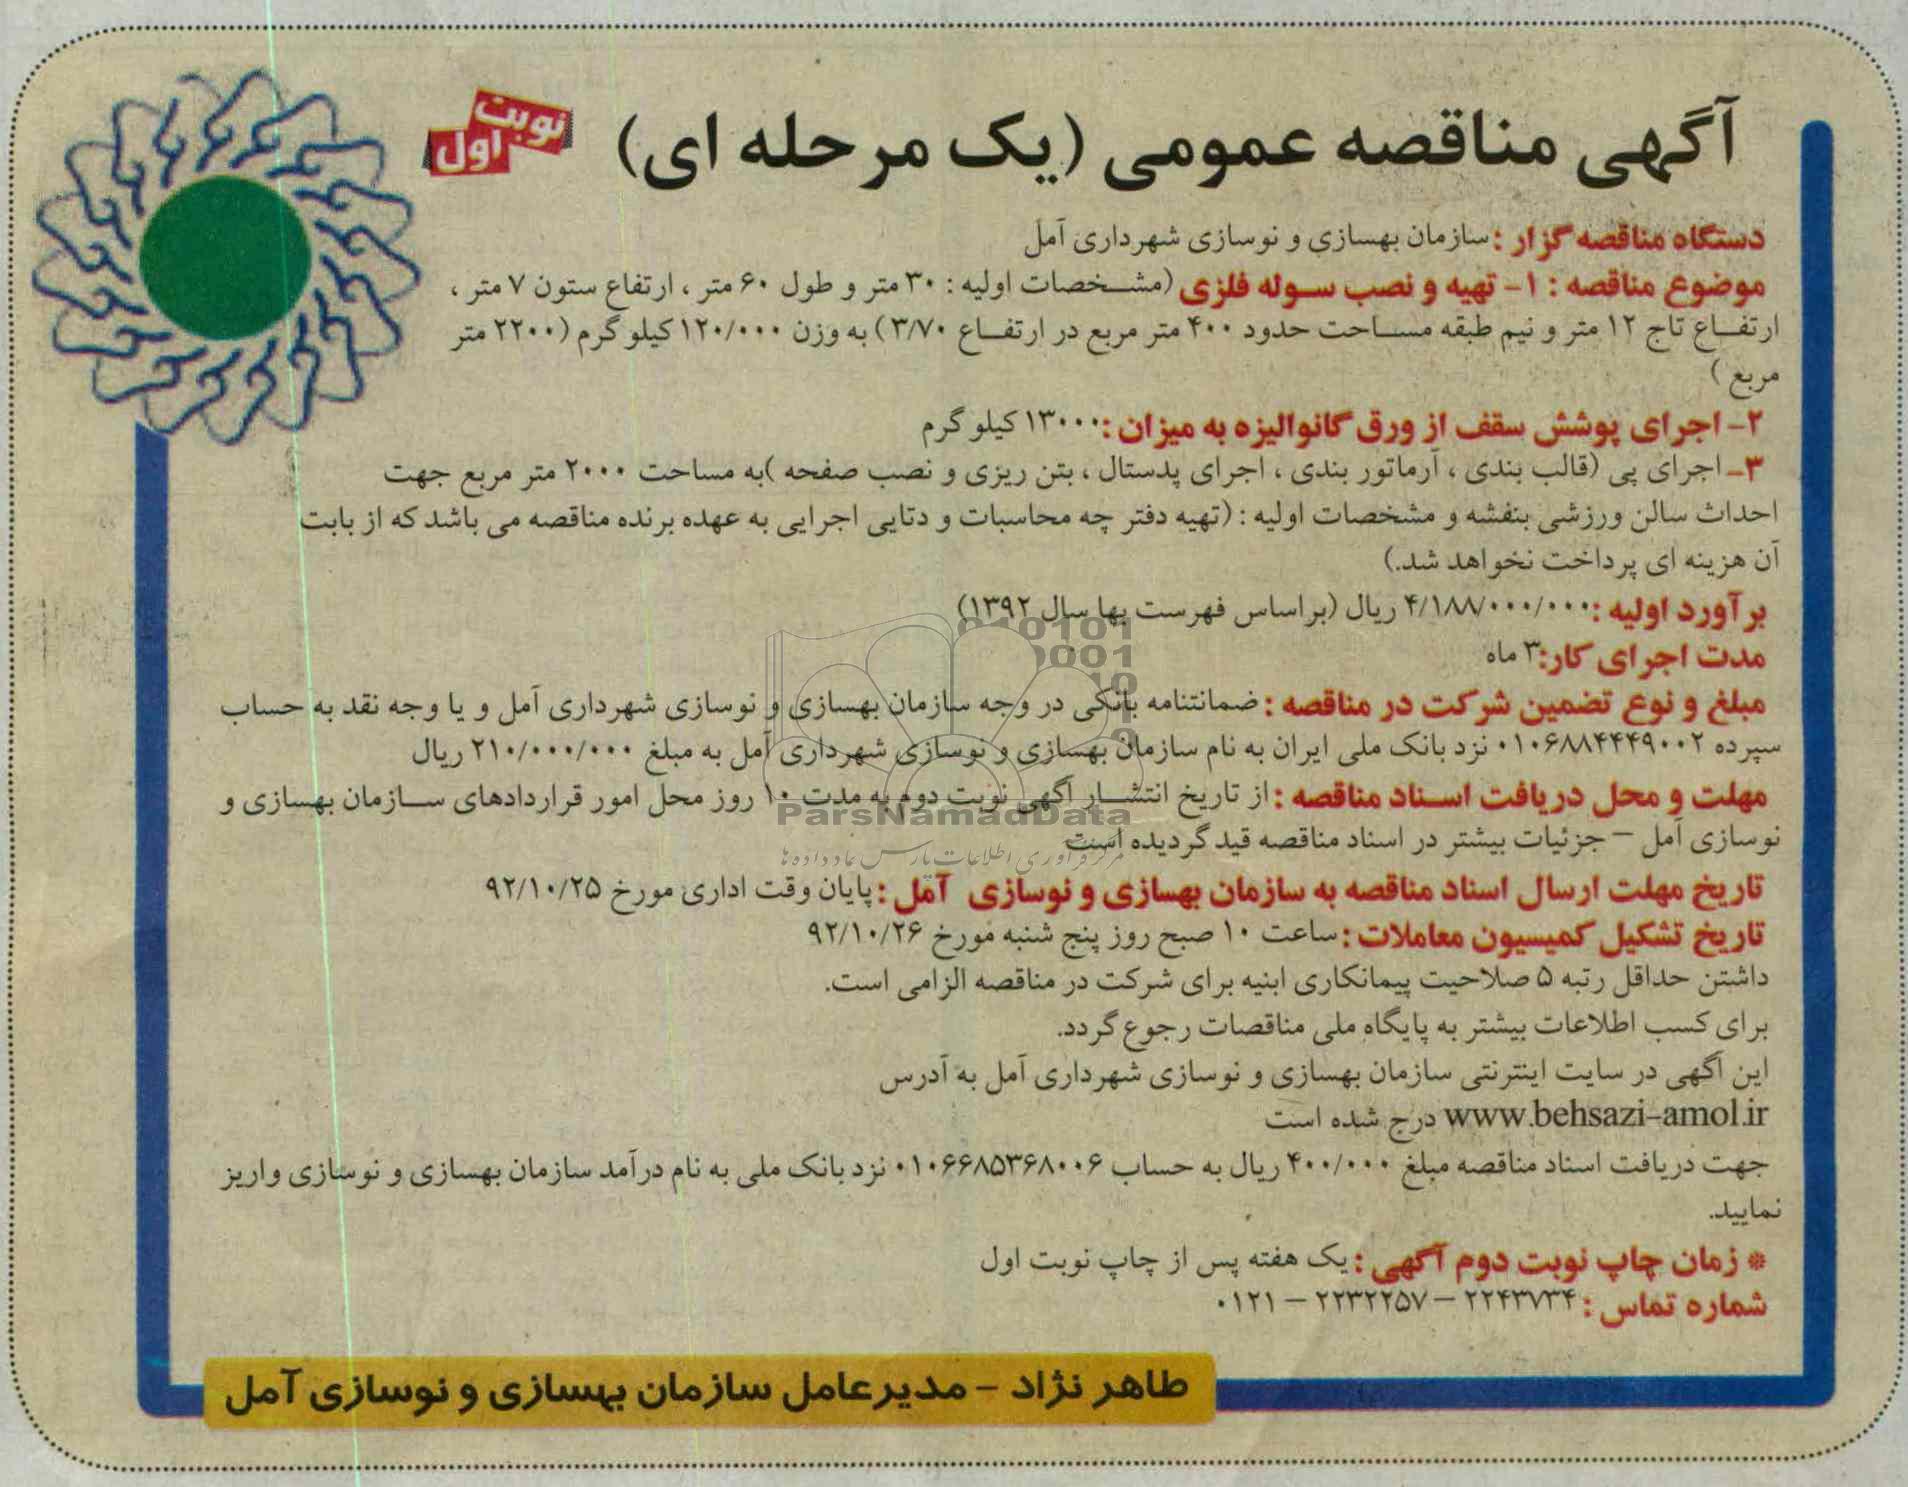 آگهی مناقصه عمومی (یک مرحله ای)
نوبت اول
دستگاه مناقصه گزار : سازمان بهسازی و نوسازی شهرداری آمل
موضوع مناقصه : ۱- تهیه و نصب سوله فلزی (مشخصات اولیه : ۳۰ متر و طول ۶۰ متر ، ارتفاع ستون ۷ متر ،
ارتفاع تاج ۱۲ متر و نیم طبقه مساحت حدود ۴۰۰ متر مربع در ارتفاع ۳/۷۰) به وزن ۱۲۰/۰۰۰ کیلو گرم (۲۲۰۰ متر
مربع )
۲- اجرای پوشش سقف از ورق گانوالیزه به میزان : ۱۳۰۰۰ کیلو گرم
۳- اجرای پی (قالب بندی ، آرماتور بندی ، اجرای پدستال ، بتن ریزی و نصب صفحه )به مساحت ۲۰۰۰ متر مربع جهت
احداث سالن ورزشی بنفشه و مشخصات اولیه : (تهیه دفتر چه محاسبات و دتایی اجرایی به عهده برنده مناقصه می باشد که از بابت
آن هزینه ای پرداخت نخواهد شد.)
برآورد اولیه : ۴/۱۸۸/۰۰۰/۰۰۰ ریال (براساس فهرست بها سال ۱۳۹۲)
مدت اجرای کار: ۳ ماه
مبلغ و نوع تضمین شرکت در مناقصه : ضمانتنامه بانکی در وجه سازمان بهسازی و نوسازی شهرداری آمل و یا وجه نقد به حساب
سپرده ۰۱۰۶۸۸۴۴۴۹۰۰۲ نزد بانک ملی ایران به نام سازمان بهسازی و نوسازی شهرداری آمل به مبلغ ۲۱۰/۰۰۰/۰۰۰ ریال
مهلت و محل دریافت اسناد مناقصه : از تاریخ انتشار آگهی نوبت دوم به مدت ۱۰ روز محل امور قراردادهای سازمان بهسازی و
نوسازی آمل – جزئیات بیشتر در اسناد مناقصه قید گردیده است
تاریخ مهلت ارسال اسناد مناقصه به سازمان بهسازی و نوسازی آمل : پایان وقت اداری مورخ ۹۲/۱۰/۲۵
تاریخ تشکیل کمیسیون معاملات : ساعت ۱۰ صبح روز پنج شنبه مورخ ۹۲/۱۰/۲۶
داشتن حداقل رتبه ۵ صلاحیت پیمانکاری ابنیه برای شرکت در مناقصه الزامی است.
برای کسب اطلاعات بیشتر به پایگاه ملی مناقصات رجوع گردد.
این آگهی در سایت اینترنتی سازمان بهسازی و نوسازی شهرداری آمل به آدرس
www.behsazi-amol.ir درج شده است
جهت دریافت اسناد مناقصه مبلغ ۴۰۰/۰۰۰ ریال به حساب ۰۱۰۶۶۸۵۳۶۸۰۰۶ نزد بانک ملی به نام درآمد سازمان بهسازی و نوسازی واریز
نمایید.
* زمان چاپ نوبت دوم آگهی : یک هفته پس از چاپ نوبت اول
شماره تماس : ۲۲۴۳۷۳۴ – ۲۲۳۲۲۵۷ – ۰۱۲۱
طاهر نژاد - مدیرعامل سازمان بهسازی و نوسازی آمل
ParsNamadData
مرکز فرآوری اطلاعات پارس نماد داده ها